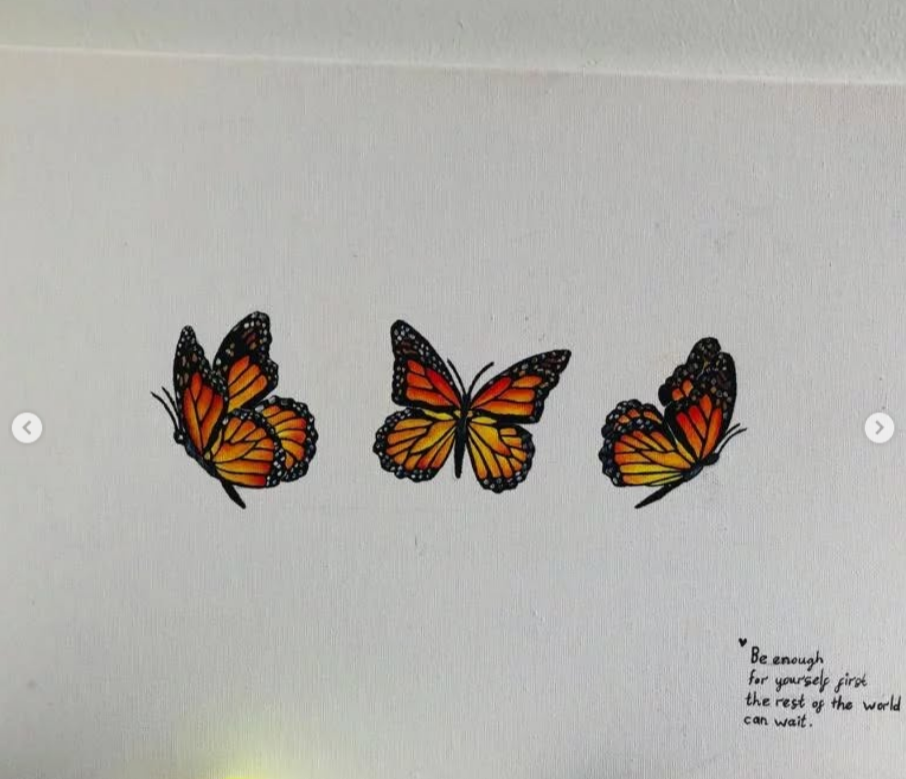 Be enough
for yourself first
the rest of the world
can wait.